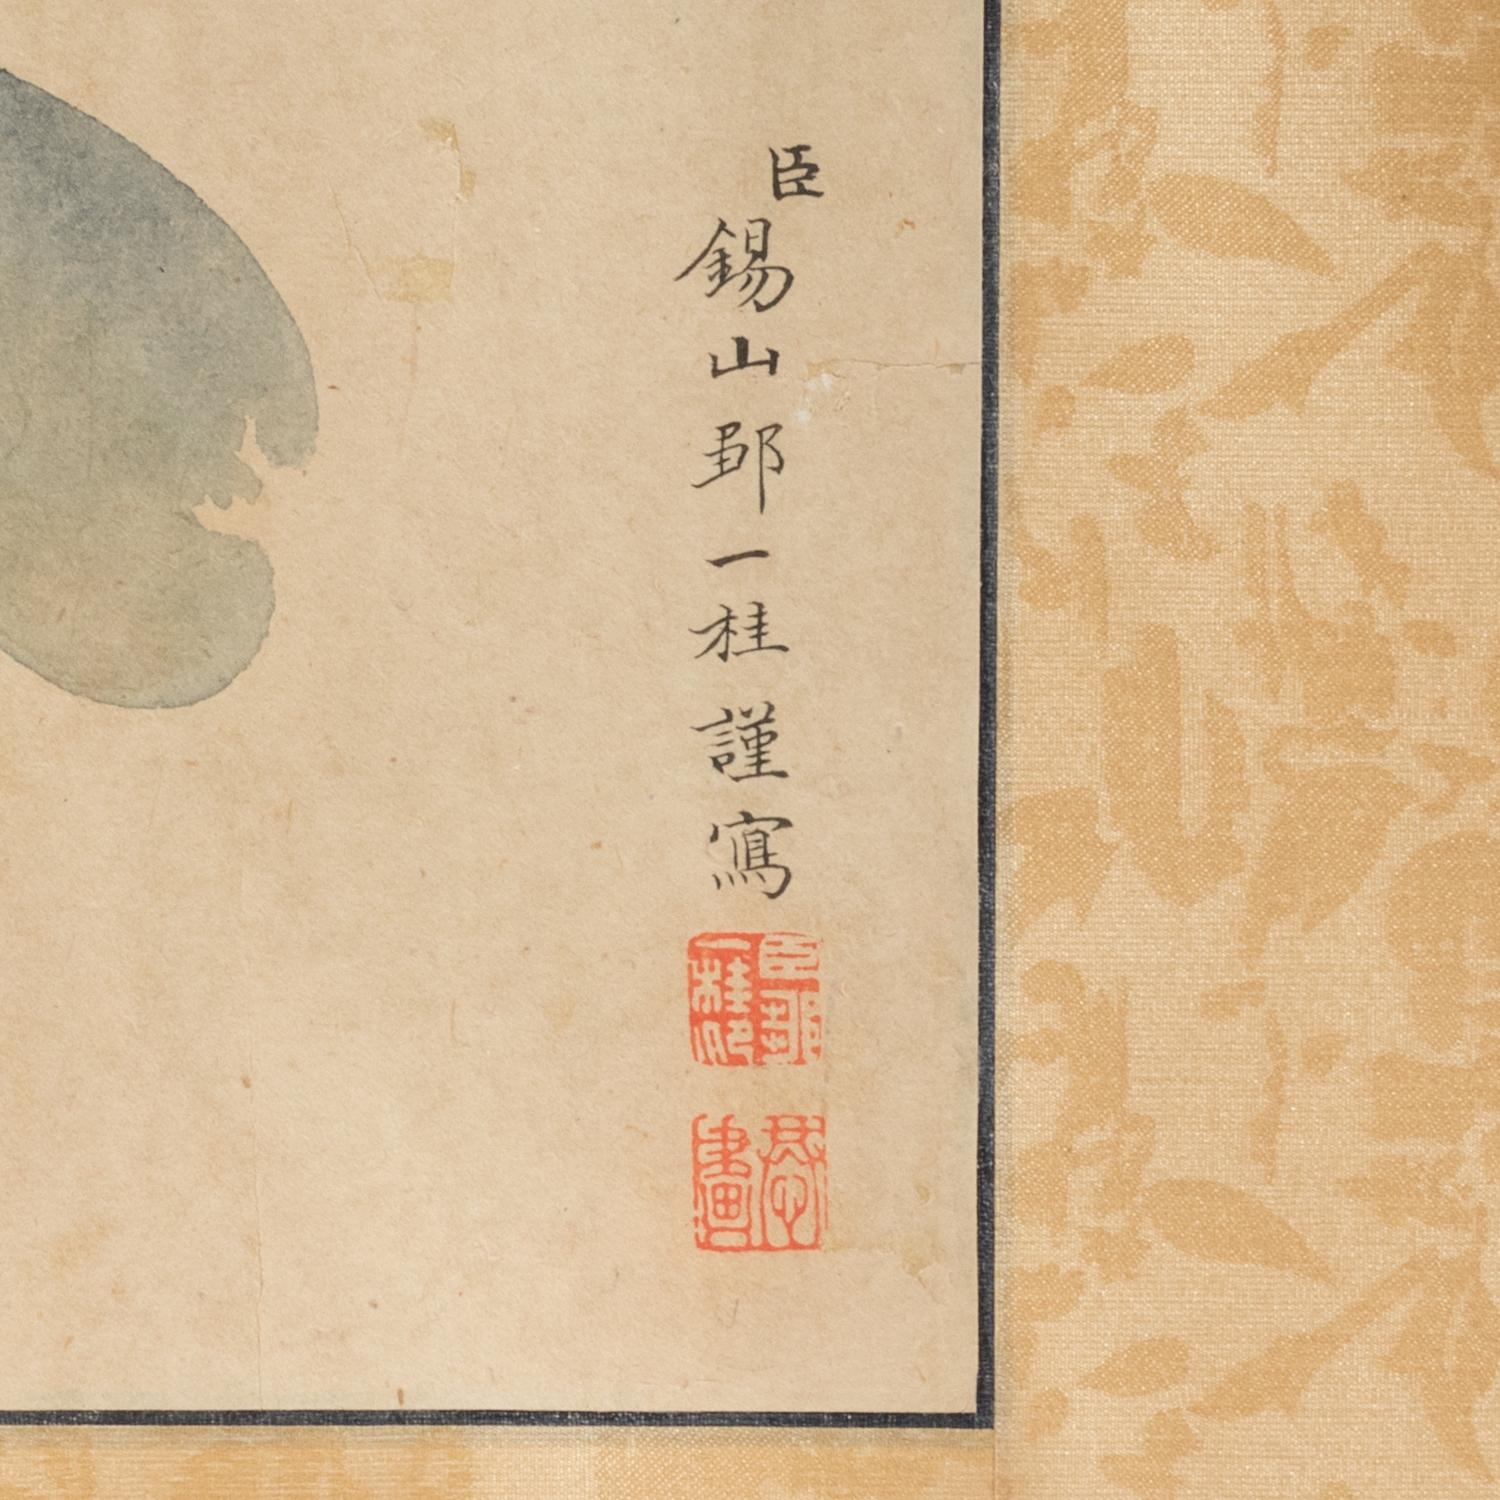 臣錫山鄒一桂謹寫
臣鄒
一桂印
恭
畫